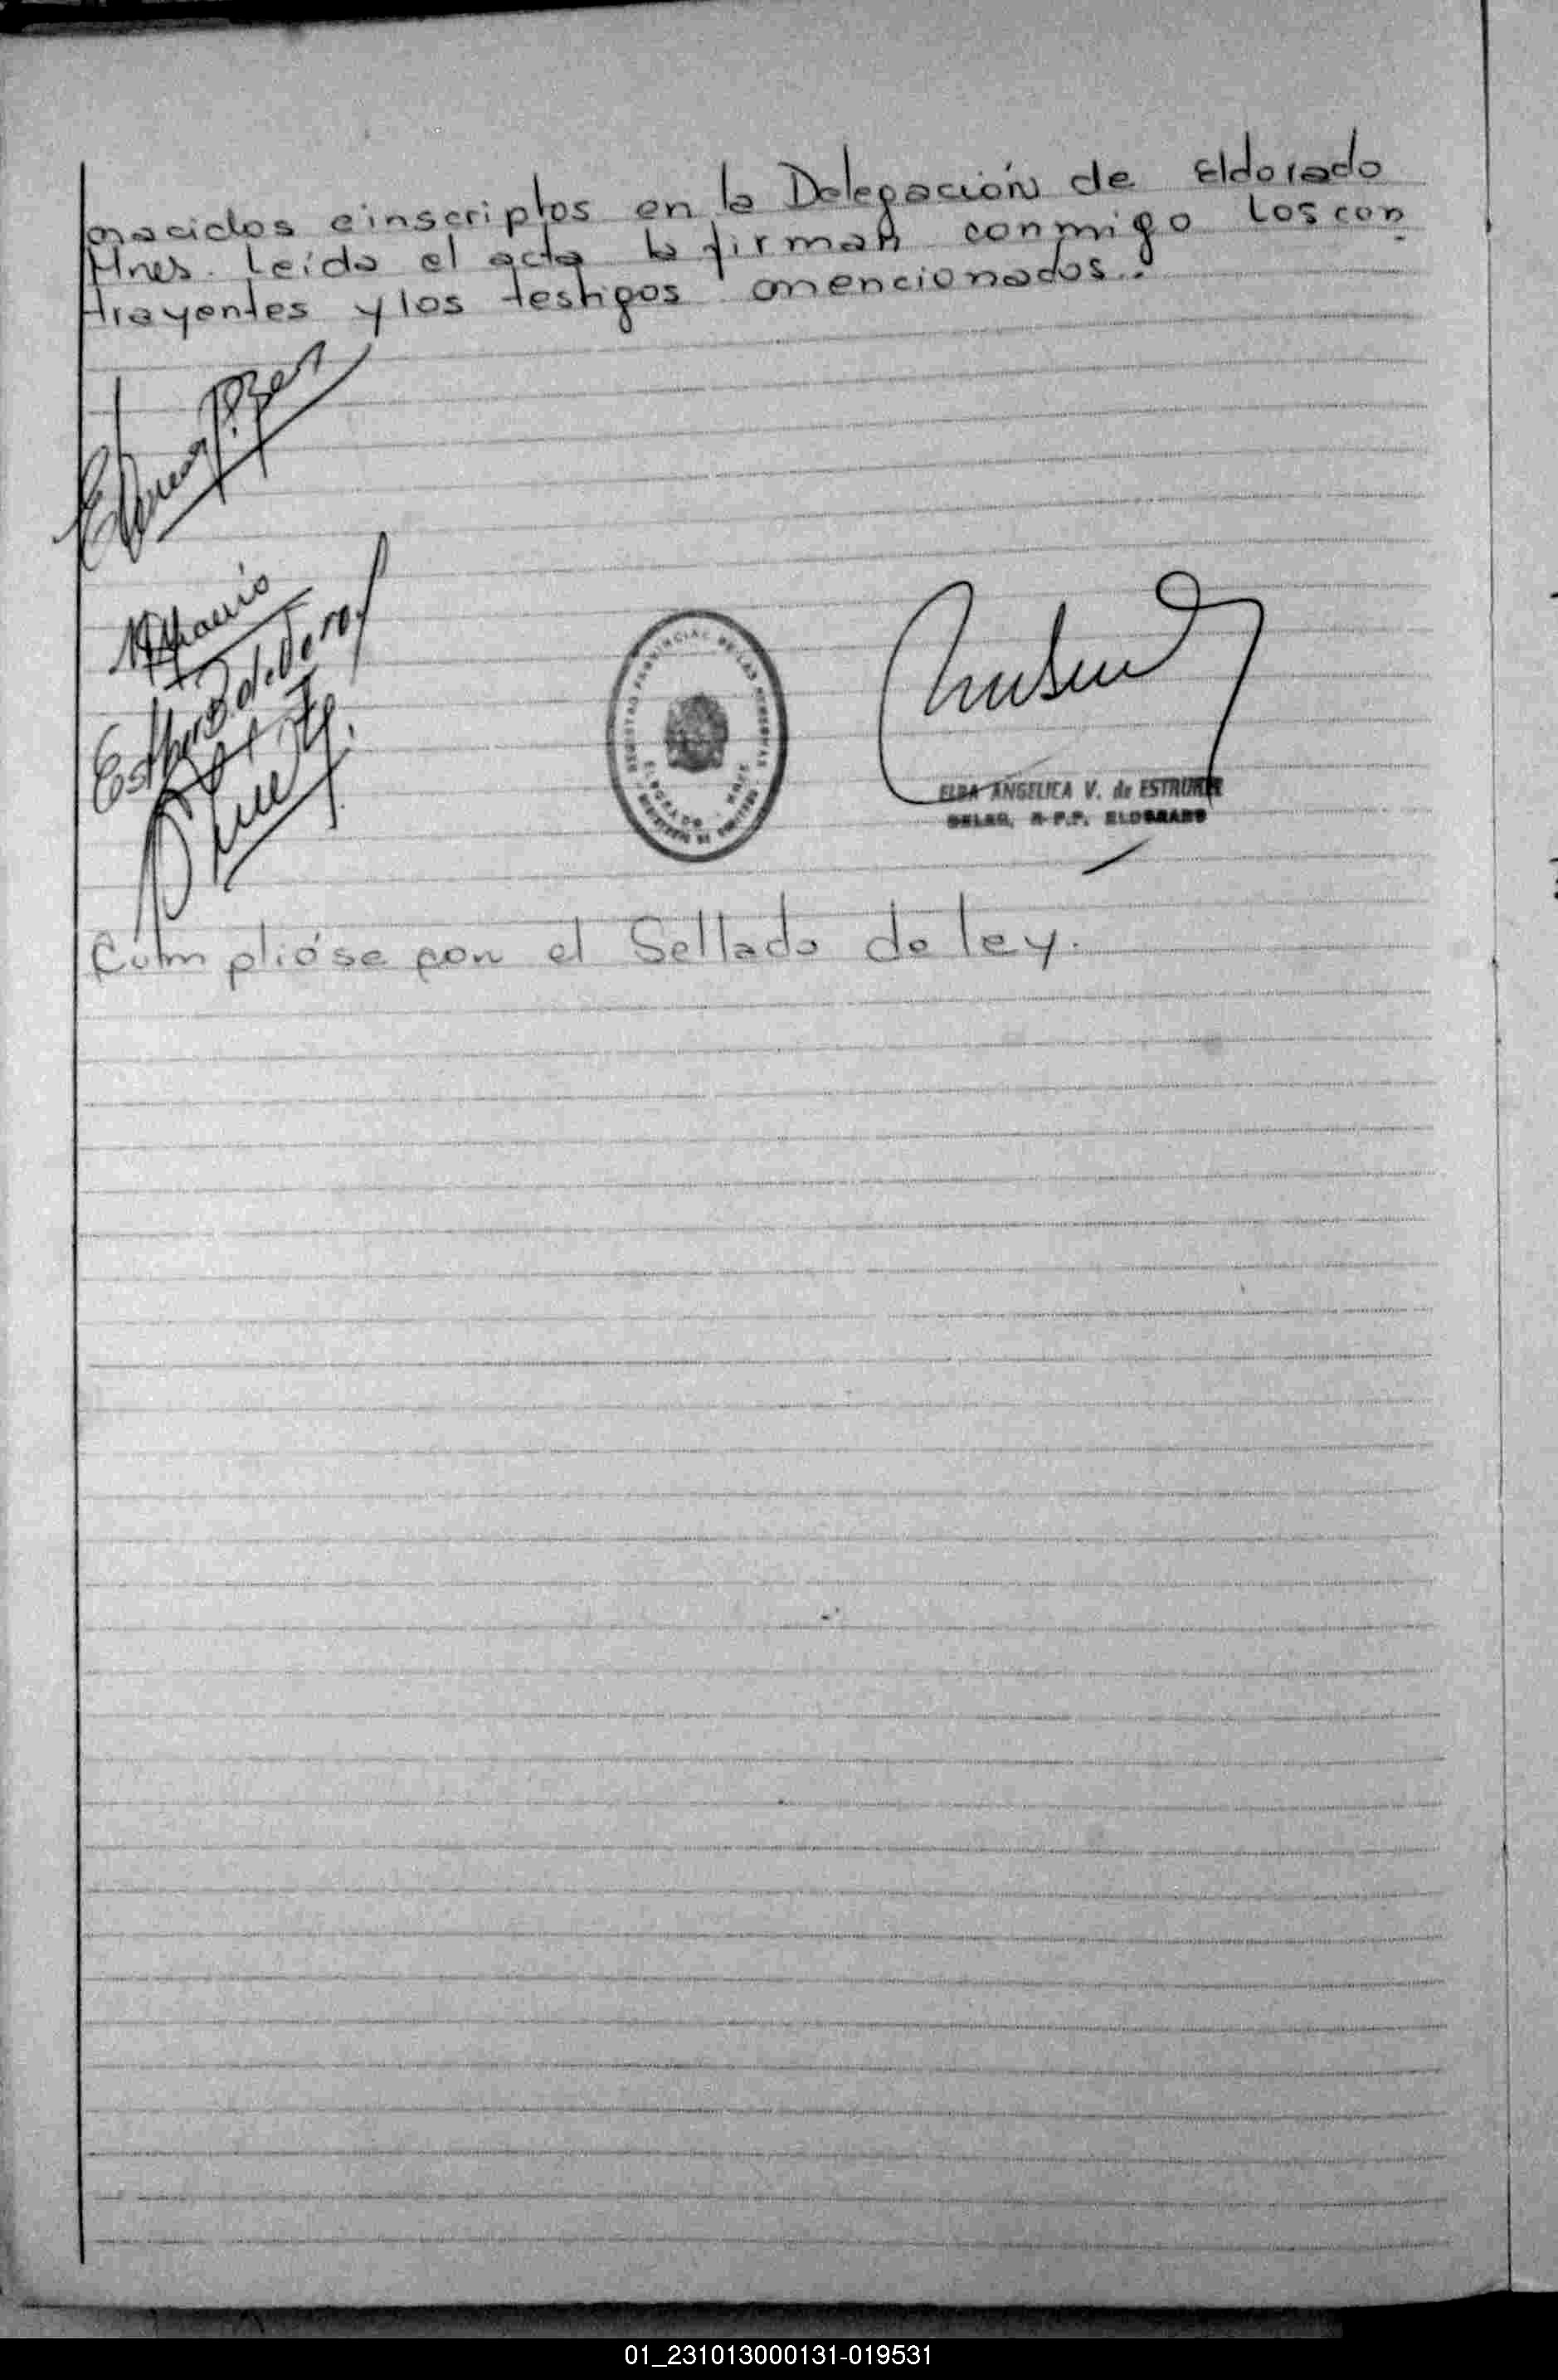 nacidos e inscriptos en la Delegación de Eldorado
Mnes. Leída el acta la firman conmigo los con
trayentes y los testigos mencionados.
Esther B. de Vera
REGISTRO PROVINCIAL DE LAS PERSONAS
ELDORADO
ELBA ANGELICA V. de
DELEG. R.P.P. ELDORADO
Cumplióse con el Sellado de ley.
01_231013000131-019531